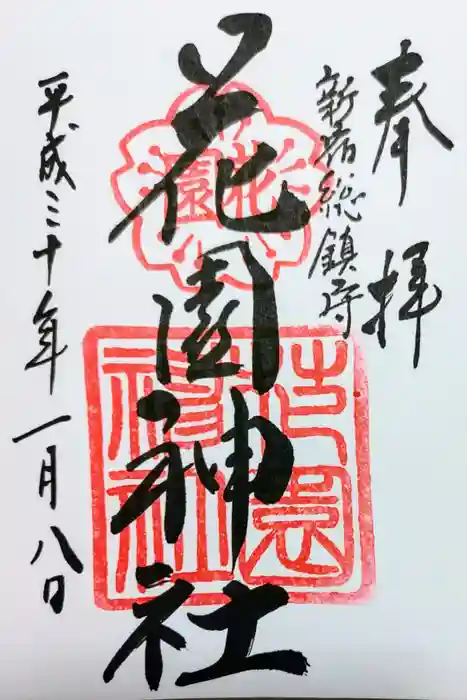 奉拝
新宿総鎮守
花園
花園神社
花園神社
平成三十年一月八日